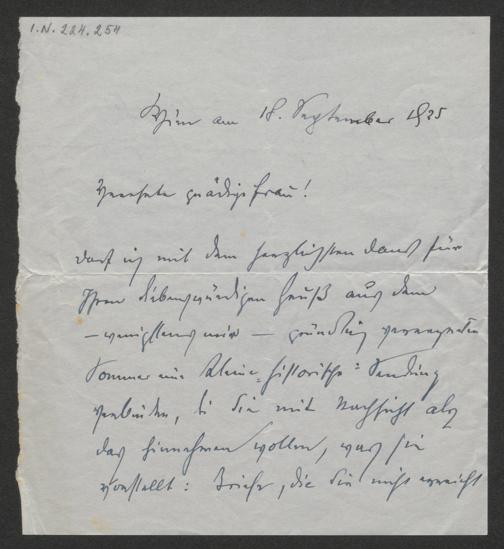 I.N. 224.254
Wien am 18. September 1925
Verehrte gnädige Frau!
Darf ich mit dem herzlichsten Dank für
Ihren liebenswürdigen Gruß aus dem
– wenigstens mir – gründlich verregneten
Sommer eine kleine "historische" Sendung
verbinden, die Sie mit Nachsicht als
das hinnehmen wollen, was sie
vorstellt: Briefe, die Sie nicht erreicht